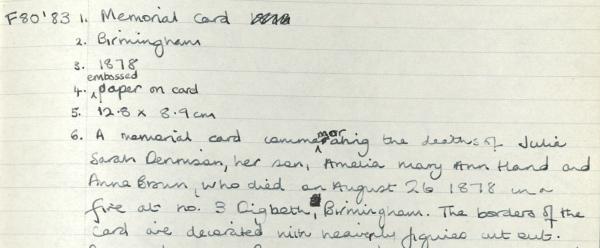 F80'83 1. Memorial card
2. Birmingham
3. 1878
embossed
4. paper on card
5. 12.8 x 8.9cm
6. A memorial card commemorating the deaths of Julia
Sarah Dennison, her son, Amelia Mary Ann Hand and
Anna Brown, who died on August 26 1878 in a
fire at no. 3 Digbeth, Birmingham. The borders of the
card are decorated with heavenly figures cut out.